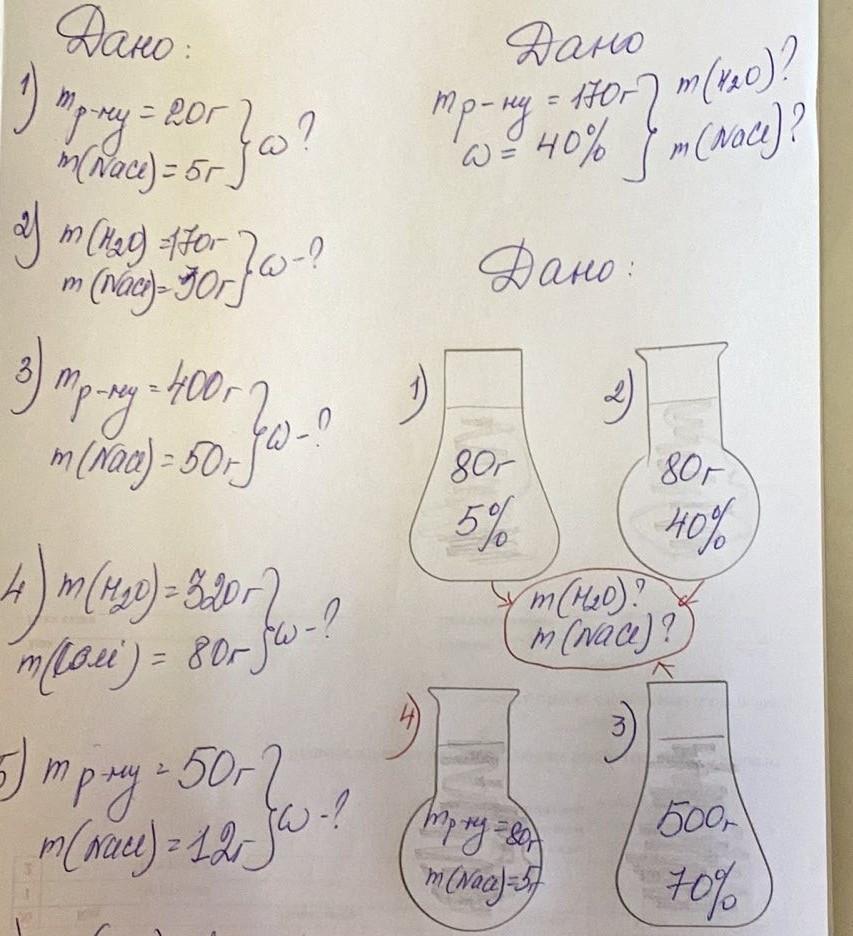 Дано:
1) m р-ну = 20г
m(NaCl) = 5г } ω?
2) m(H₂O) = 170г
m(NaCl) = 30г } ω-?
3) m р-ну = 400г
m(NaCl) = 50г } ω-?
4) m(H₂O) = 320г
m(солі) = 80г } ω-?
5) m р-ну = 50г
m(NaCl) = 12г } ω-?
Дано
m р-ну = 170г } m(H₂O)?
ω = 40% } m(NaCl)?
Дано:
1)
80г
5%
2)
80г
40%
m(H₂O)?
m(NaCl)?
4)
m р-ну = 80г
m(NaCl) = 5г
3)
500г
70%